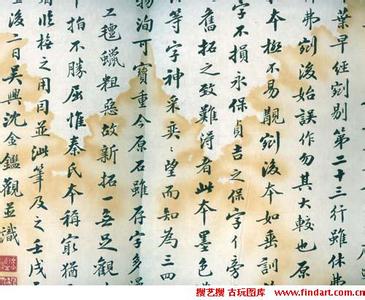 葉早經剜剔第二十三行雖休弗
弗剜後始誤作勿其大較也原
本極不易覯剜後本如乘訓
字不損永保貞吉之保字亻旁
舊拓之致難得者此本墨色
等字神采奕奕望而知為三四
物洵可寶重今原石雖存字多
工氊蠟粗惡故新拓一無足觀
指不勝屈惟秦氏本稱冣猶
順恪之用同並泚筆及之壬戌
後二日吳興沈金鑑觀並識
搜艺搜 古玩图库 www.findart.com.cn